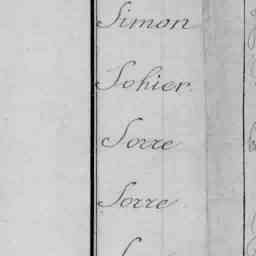 Simon
Sohier
Sorre
Sorre